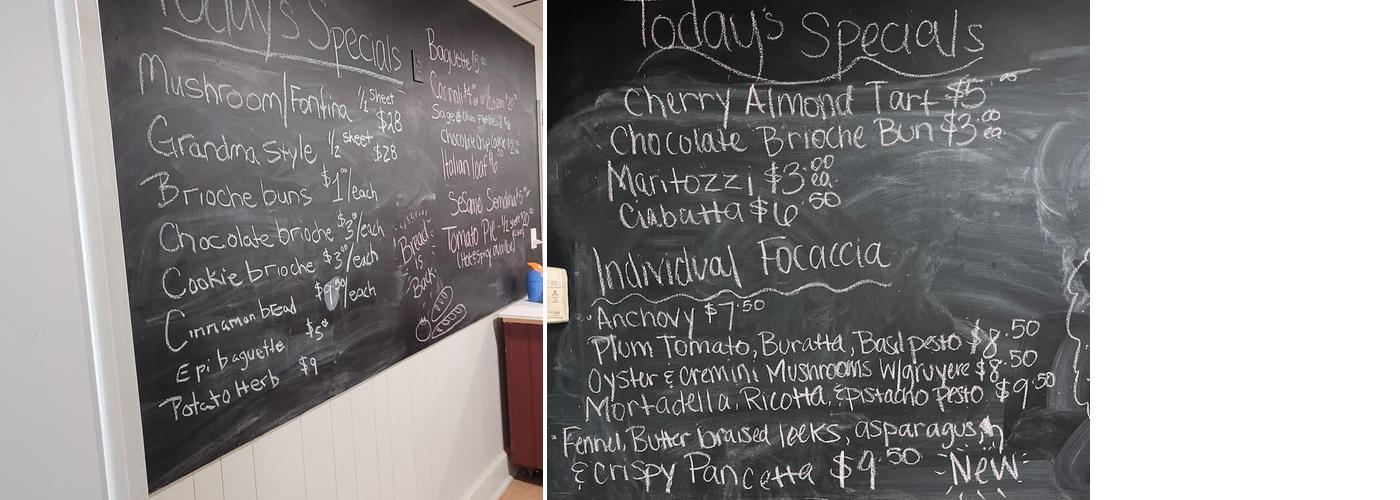 Today's Specials
Mushroom/Fontina 1/2 sheet $28
Grandma Style 1/2 sheet $28
Brioche buns $1.00/each
Chocolate brioche $3.00/each
Cookie brioche $3.00/each
Cinnamon bread $9.50/each
Epi baguette $5.00
Potato Herb $9
Baguette $5.00
Cannoli
Sage & Olive
Chocolate Chip Cookie
Italian loaf $6
Sesame Semolina $5
Tomato Pie - 1/2 sheet
(Hot & spicy available)
Bread
is
Back!
Today's Specials
Cherry Almond Tart $5.00
Chocolate Brioche Bun $3.00 ea
Maritozzi $3.00 ea.
Ciabatta $6.50
Individual Focaccia
Anchovy $7.50
Plum Tomato, Buratta, Basil pesto $8.50
Oyster & Cremini Mushrooms w/gruyere $8.50
Mortadella, Ricotta, & pistachio pesto $9.50
Fennel, Butter braised leeks, asparagus,
& crispy Pancetta $9.50 New